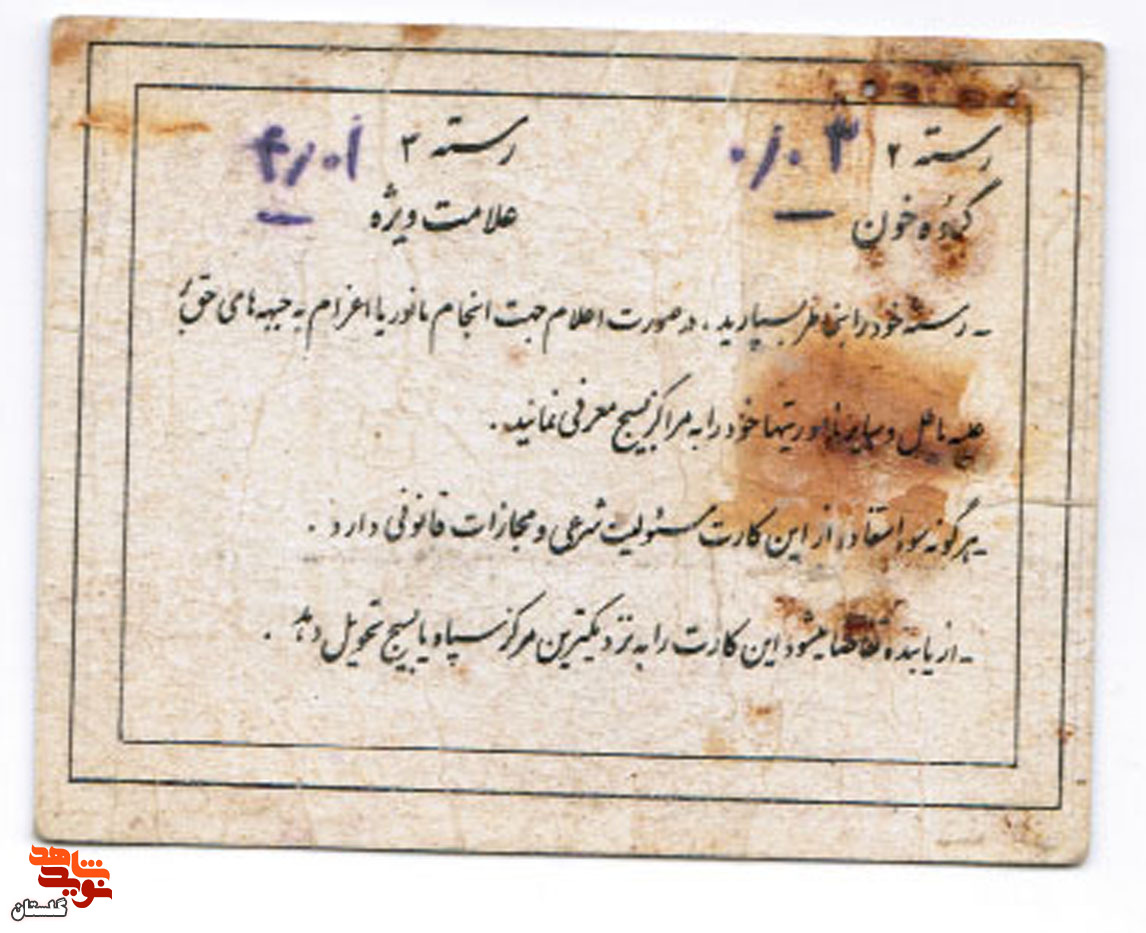 رسته ۲ ۰/۰۳ رسته ۳ ۴/۰۱
گروه خون — علامت ویژه —
- رسته خود را بخاطر بسپارید ، در صورت اعلام جهت انجام مانور یا اعزام به جبهه های حق
علیه باطل و سایر مأموریتها خود را به مراکز بسیج معرفی نمائید .
- هرگونه سوء استفاده از این کارت مسئولیت شرعی و مجازات قانونی دارد .
- از یابنده تقاضا میشود این کارت را به نزدیکترین مرکز سپاه یا بسیج تحویل دهد .
نوید شاهد
گلستان